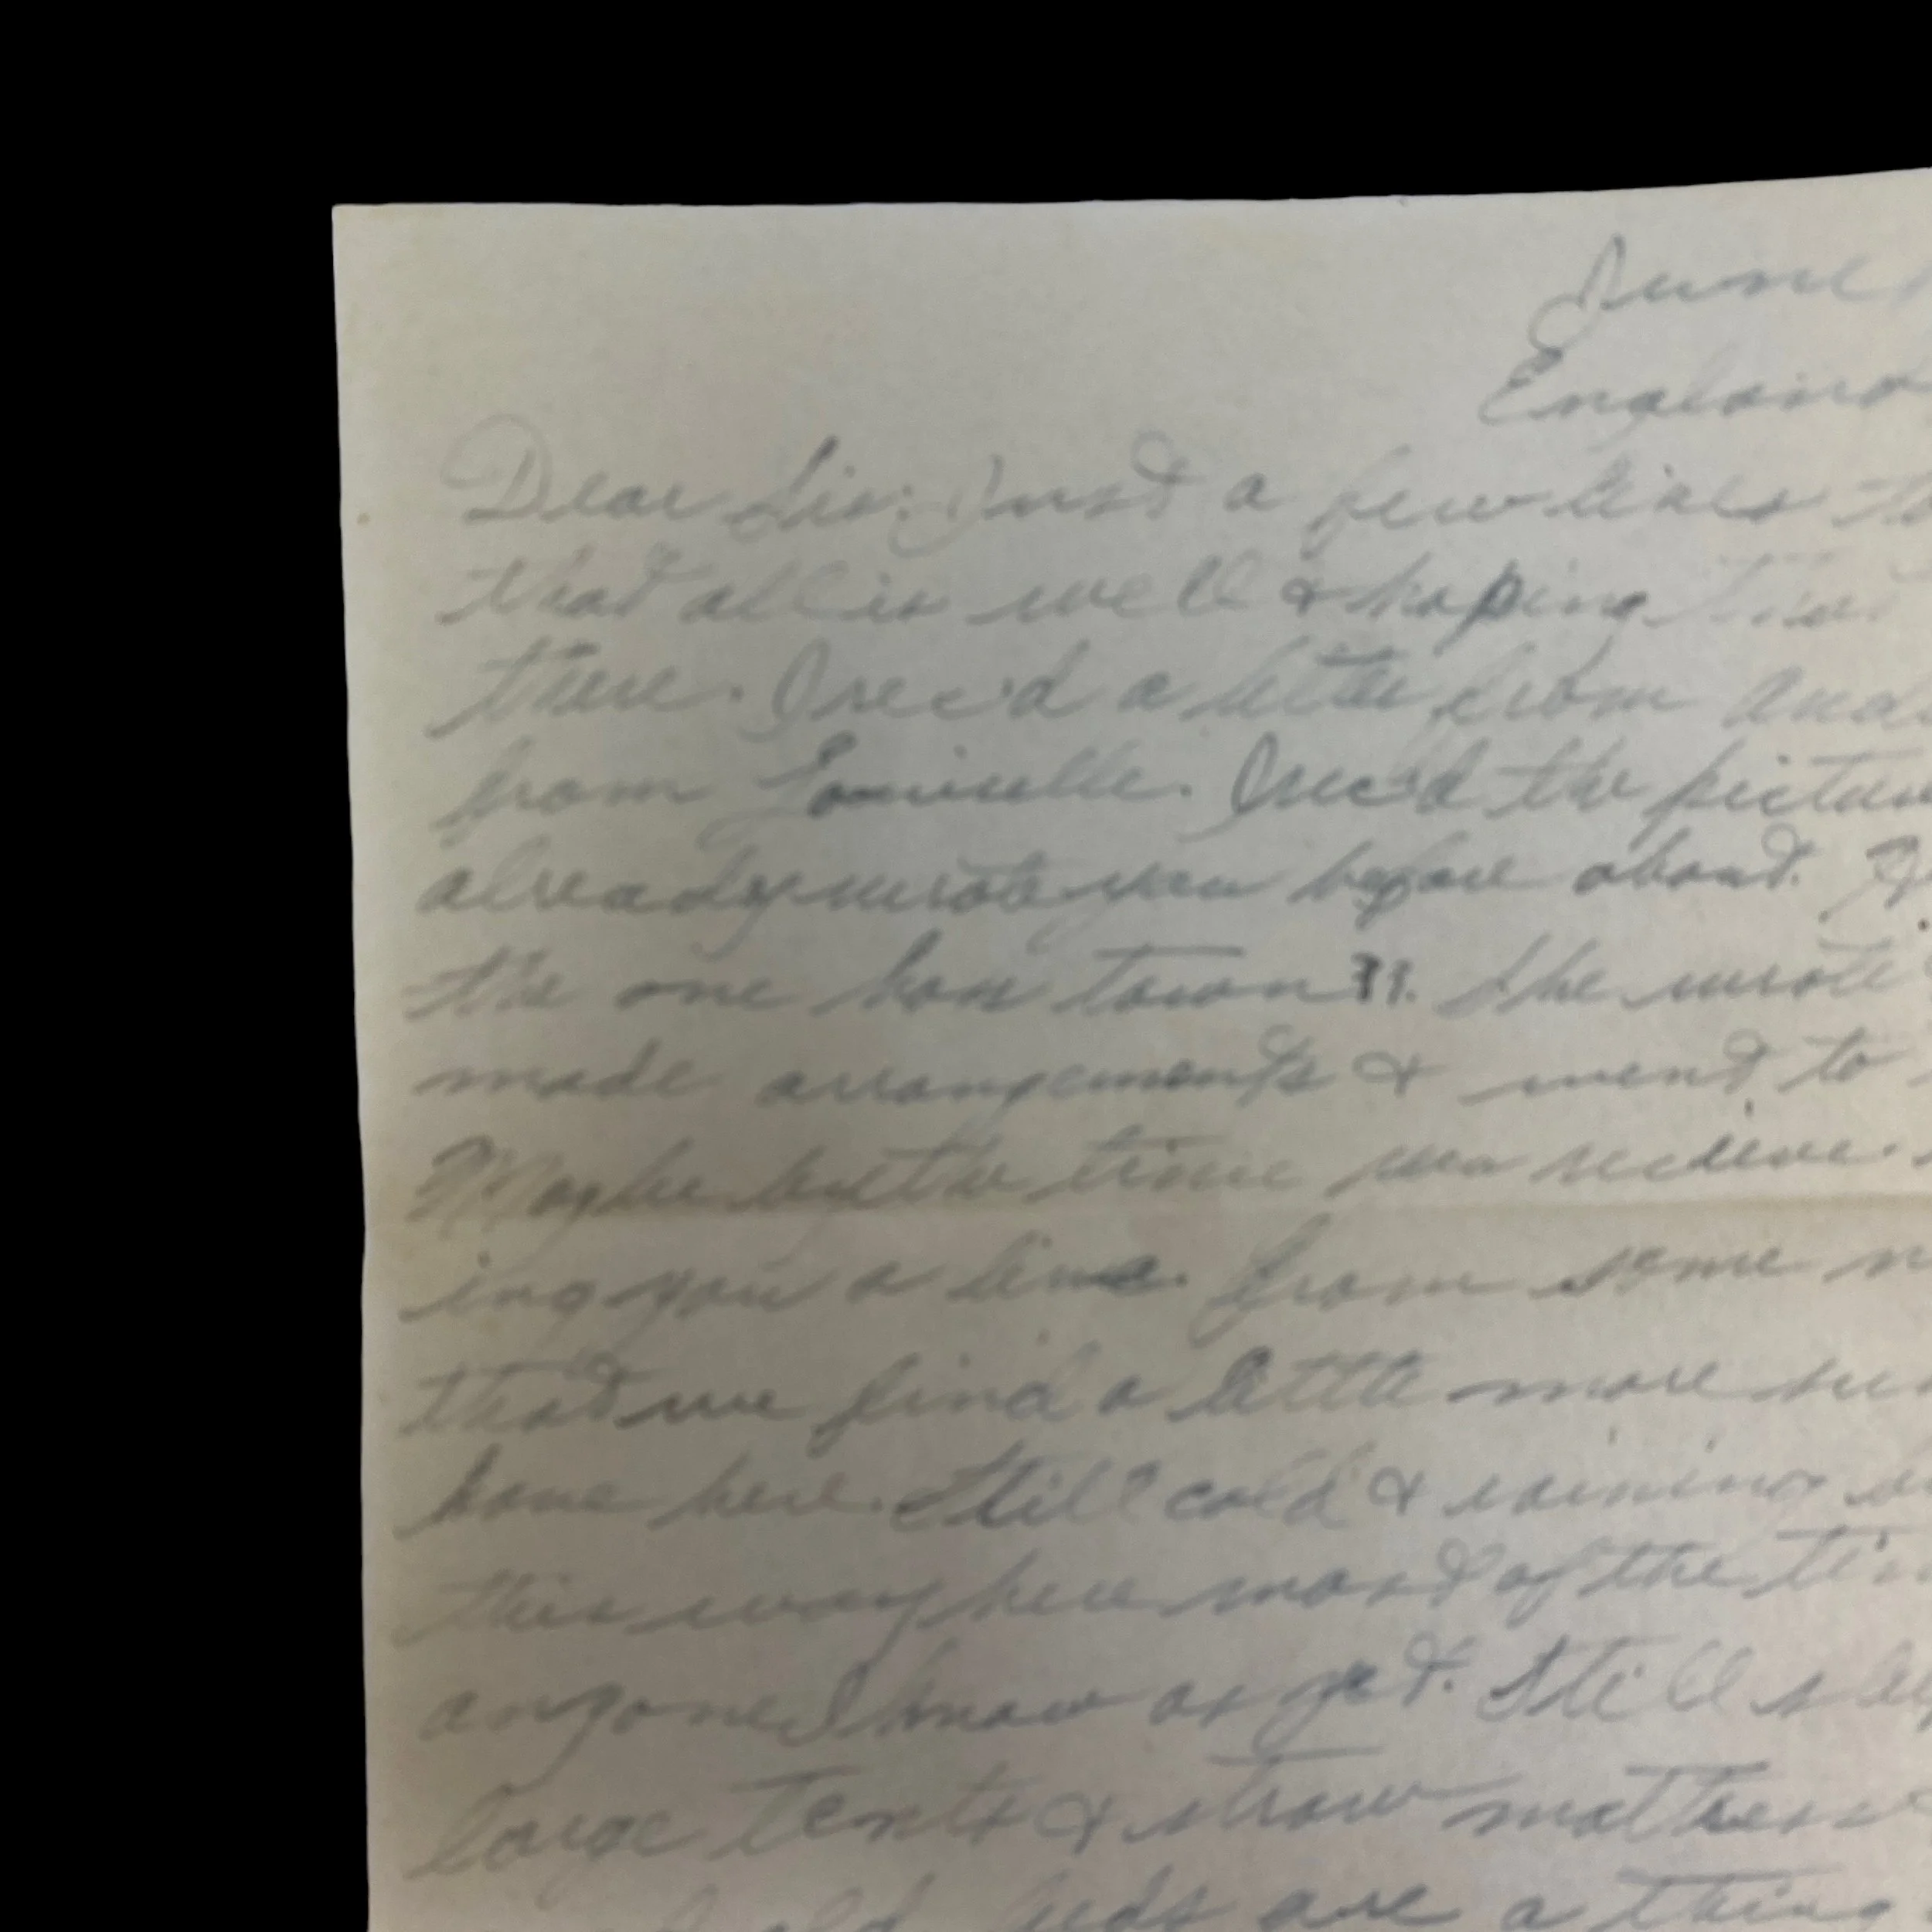 June
England
Dear Sis: Just a few lines to
that all is well & hoping
there. I rec'd a letter from
from Louisville. I rec'd the picture
already wrote you before about.
the one hoss town". She wrote
made arrangements & went to
Maybe by the time you recieve
ing you a line from some
that we find a little more
have here. Still cold & raining
this way here most of the
anyone I know as yet. Still
large tents & straw mattress
old beds are a thing